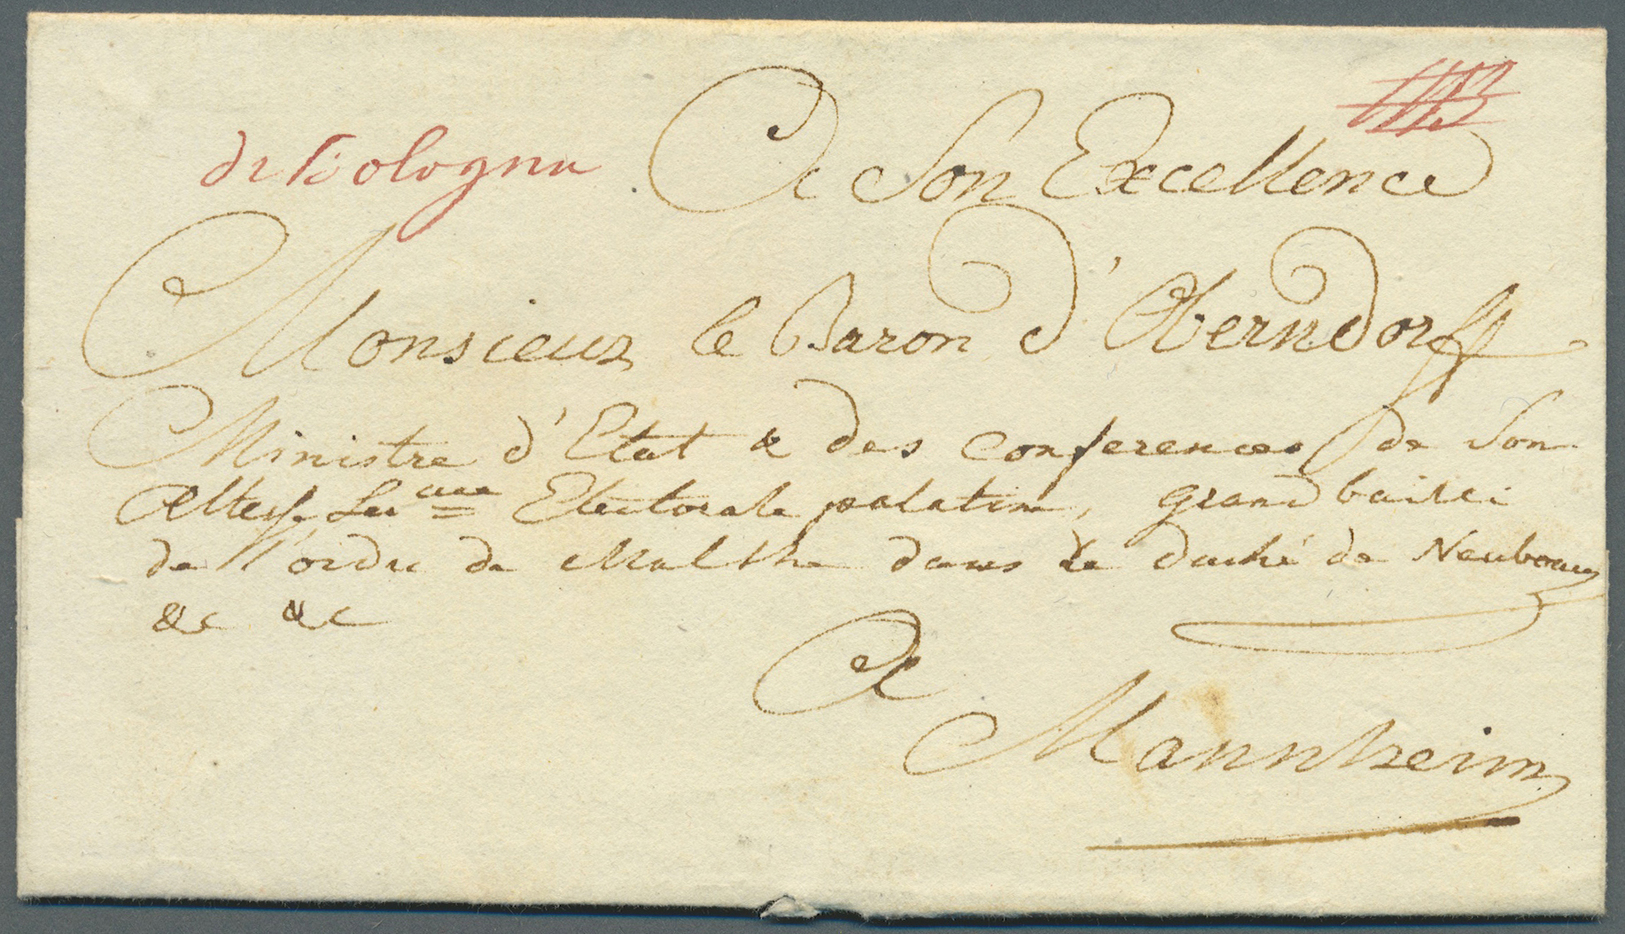 de Bologne
A Son Excellence
Monsieur le Baron d'Oberndorff
Ministre d'Etat & des conferences de Son
Altesse Ser^me Electorale palatine, grand bailli
de l'ordre de Malthe dans le duché de Neubourg
&c &c
A
Mannheim